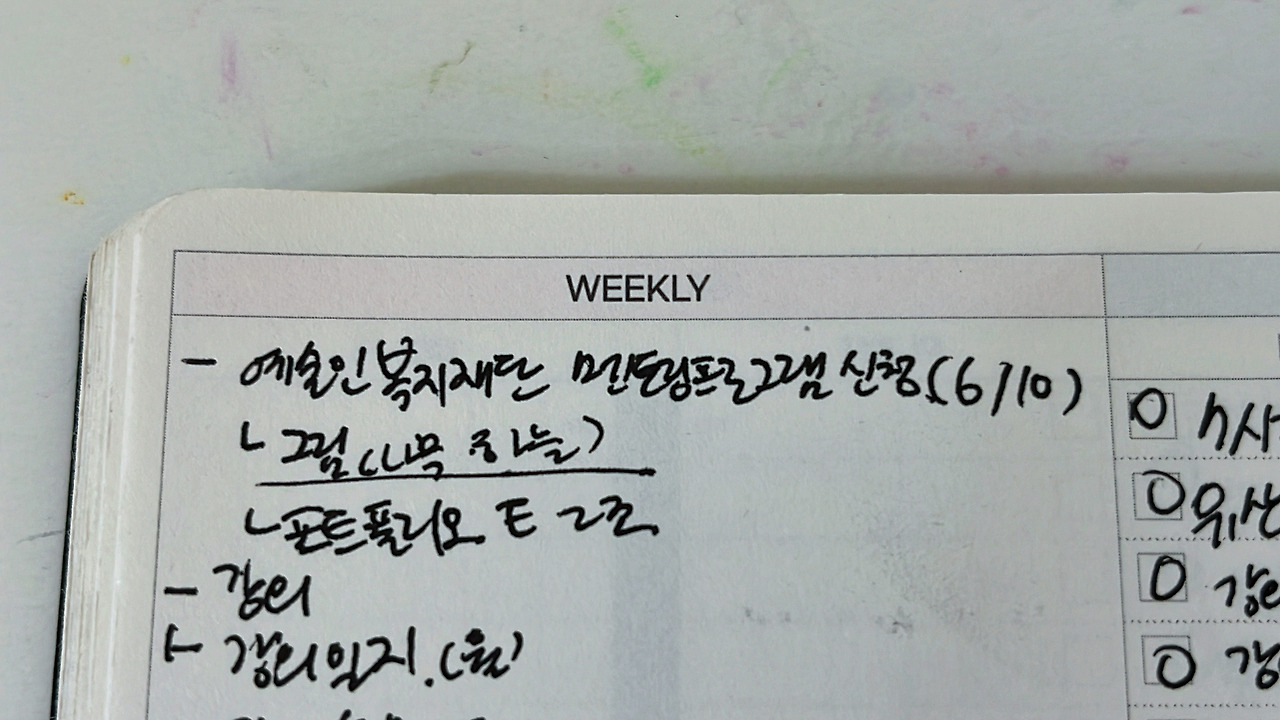 WEEKLY
- 예술인복지재단 멘토링프로그램 신청 (6/10)
ㄴ 그림 (나무 하늘)
ㄴ 포트폴리오
- 강의
ㅏ 강의일지. (월)
O
O
O 강의
O 강